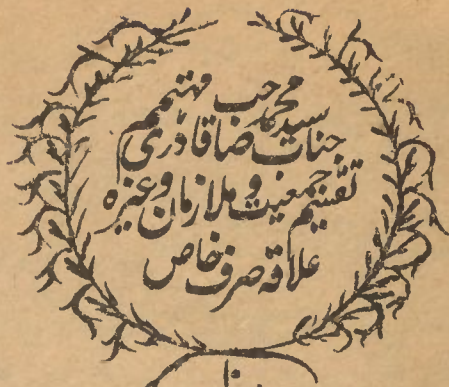 جناب سید محمد صاحب قادری مہتمم
تقسیم جمعیت و ملازمان وغیرہ
علاقہ صرف خاص